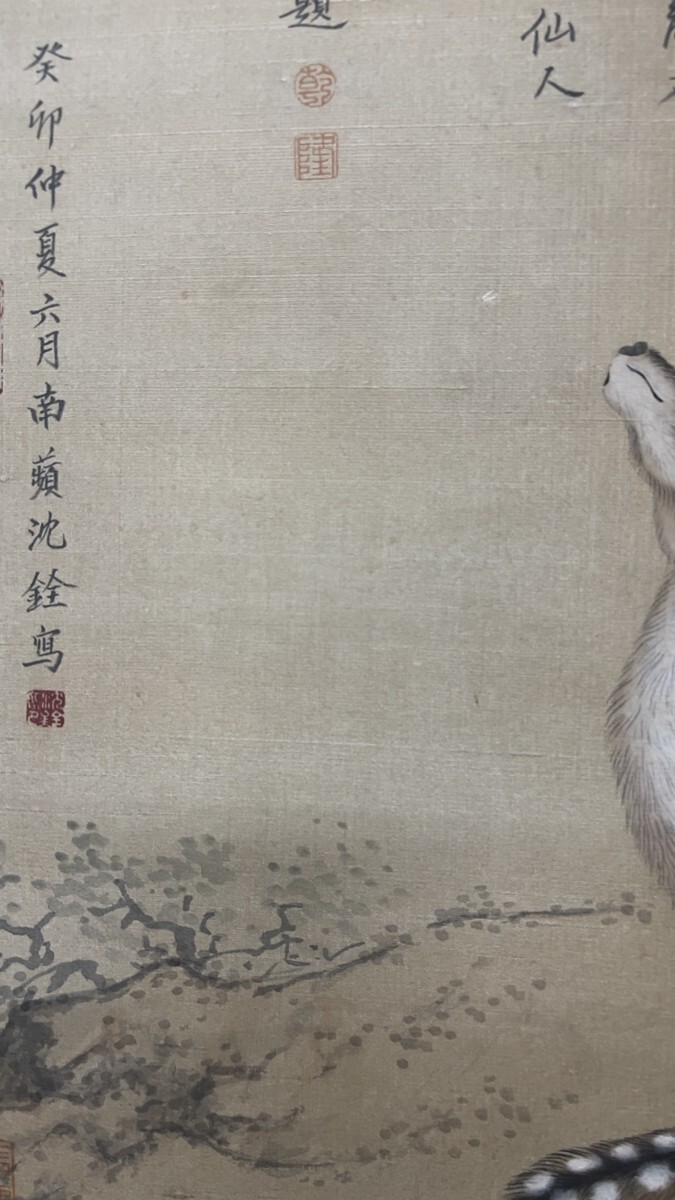 仙人
題
乾
隆
癸卯仲夏六月南蘋沈銓寫